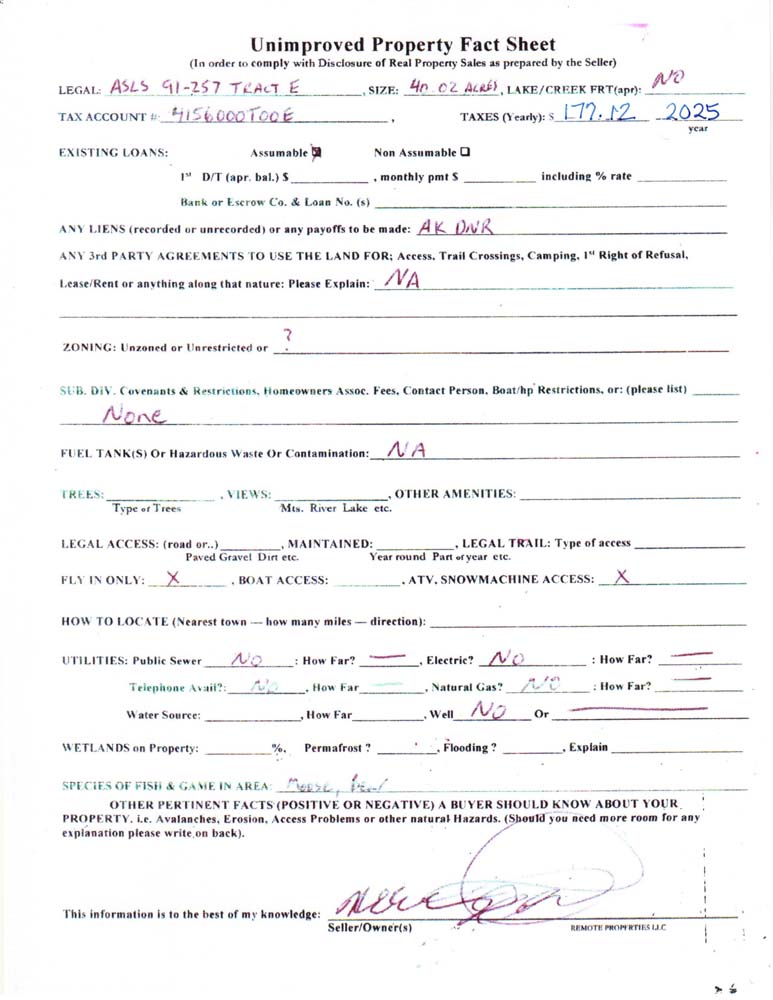 Unimproved Property Fact Sheet
(In order to comply with Disclosure of Real Property Sales as prepared by the Seller)
LEGAL: ASLS 91-257 TRACT E , SIZE: 40.02 ACRES, LAKE/CREEK FRT(apr): NO
TAX ACCOUNT #: 4156000T00E , TAXES (Yearly): $ 177.12 2025
year
EXISTING LOANS: Assumable ☒ Non Assumable ☐
1st D/T (apr. bal.) $ , monthly pmt $ including % rate
Bank or Escrow Co. & Loan No. (s)
ANY LIENS (recorded or unrecorded) or any payoffs to be made: AK DNR
ANY 3rd PARTY AGREEMENTS TO USE THE LAND FOR; Access, Trail Crossings, Camping, 1st Right of Refusal,
Lease/Rent or anything along that nature: Please Explain: NA
ZONING: Unzoned or Unrestricted or ?
SUB. DIV. Covenants & Restrictions, Homeowners Assoc. Fees, Contact Person, Boat/hp Restrictions, or: (please list)
None
FUEL TANK(S) Or Hazardous Waste Or Contamination: NA
TREES: , VIEWS: , OTHER AMENITIES:
Type of Trees Mts. River Lake etc.
LEGAL ACCESS: (road or..) , MAINTAINED: , LEGAL TRAIL: Type of access
Paved Gravel Dirt etc. Year round Part of year etc.
FLY IN ONLY: X , BOAT ACCESS: , ATV, SNOWMACHINE ACCESS: X
HOW TO LOCATE (Nearest town — how many miles — direction):
UTILITIES: Public Sewer NO : How Far? — , Electric? NO : How Far? —
Telephone Avail?: NO , How Far — , Natural Gas? NO : How Far? —
Water Source: , How Far , Well NO Or —
WETLANDS on Property: %, Permafrost ? , Flooding ? , Explain
SPECIES OF FISH & GAME IN AREA: Moose, Bear
OTHER PERTINENT FACTS (POSITIVE OR NEGATIVE) A BUYER SHOULD KNOW ABOUT YOUR
PROPERTY. i.e. Avalanches, Erosion, Access Problems or other natural Hazards. (Should you need more room for any
explanation please write on back).
This information is to the best of my knowledge:
Seller/Owner(s) REMOTE PROPERTIES LLC